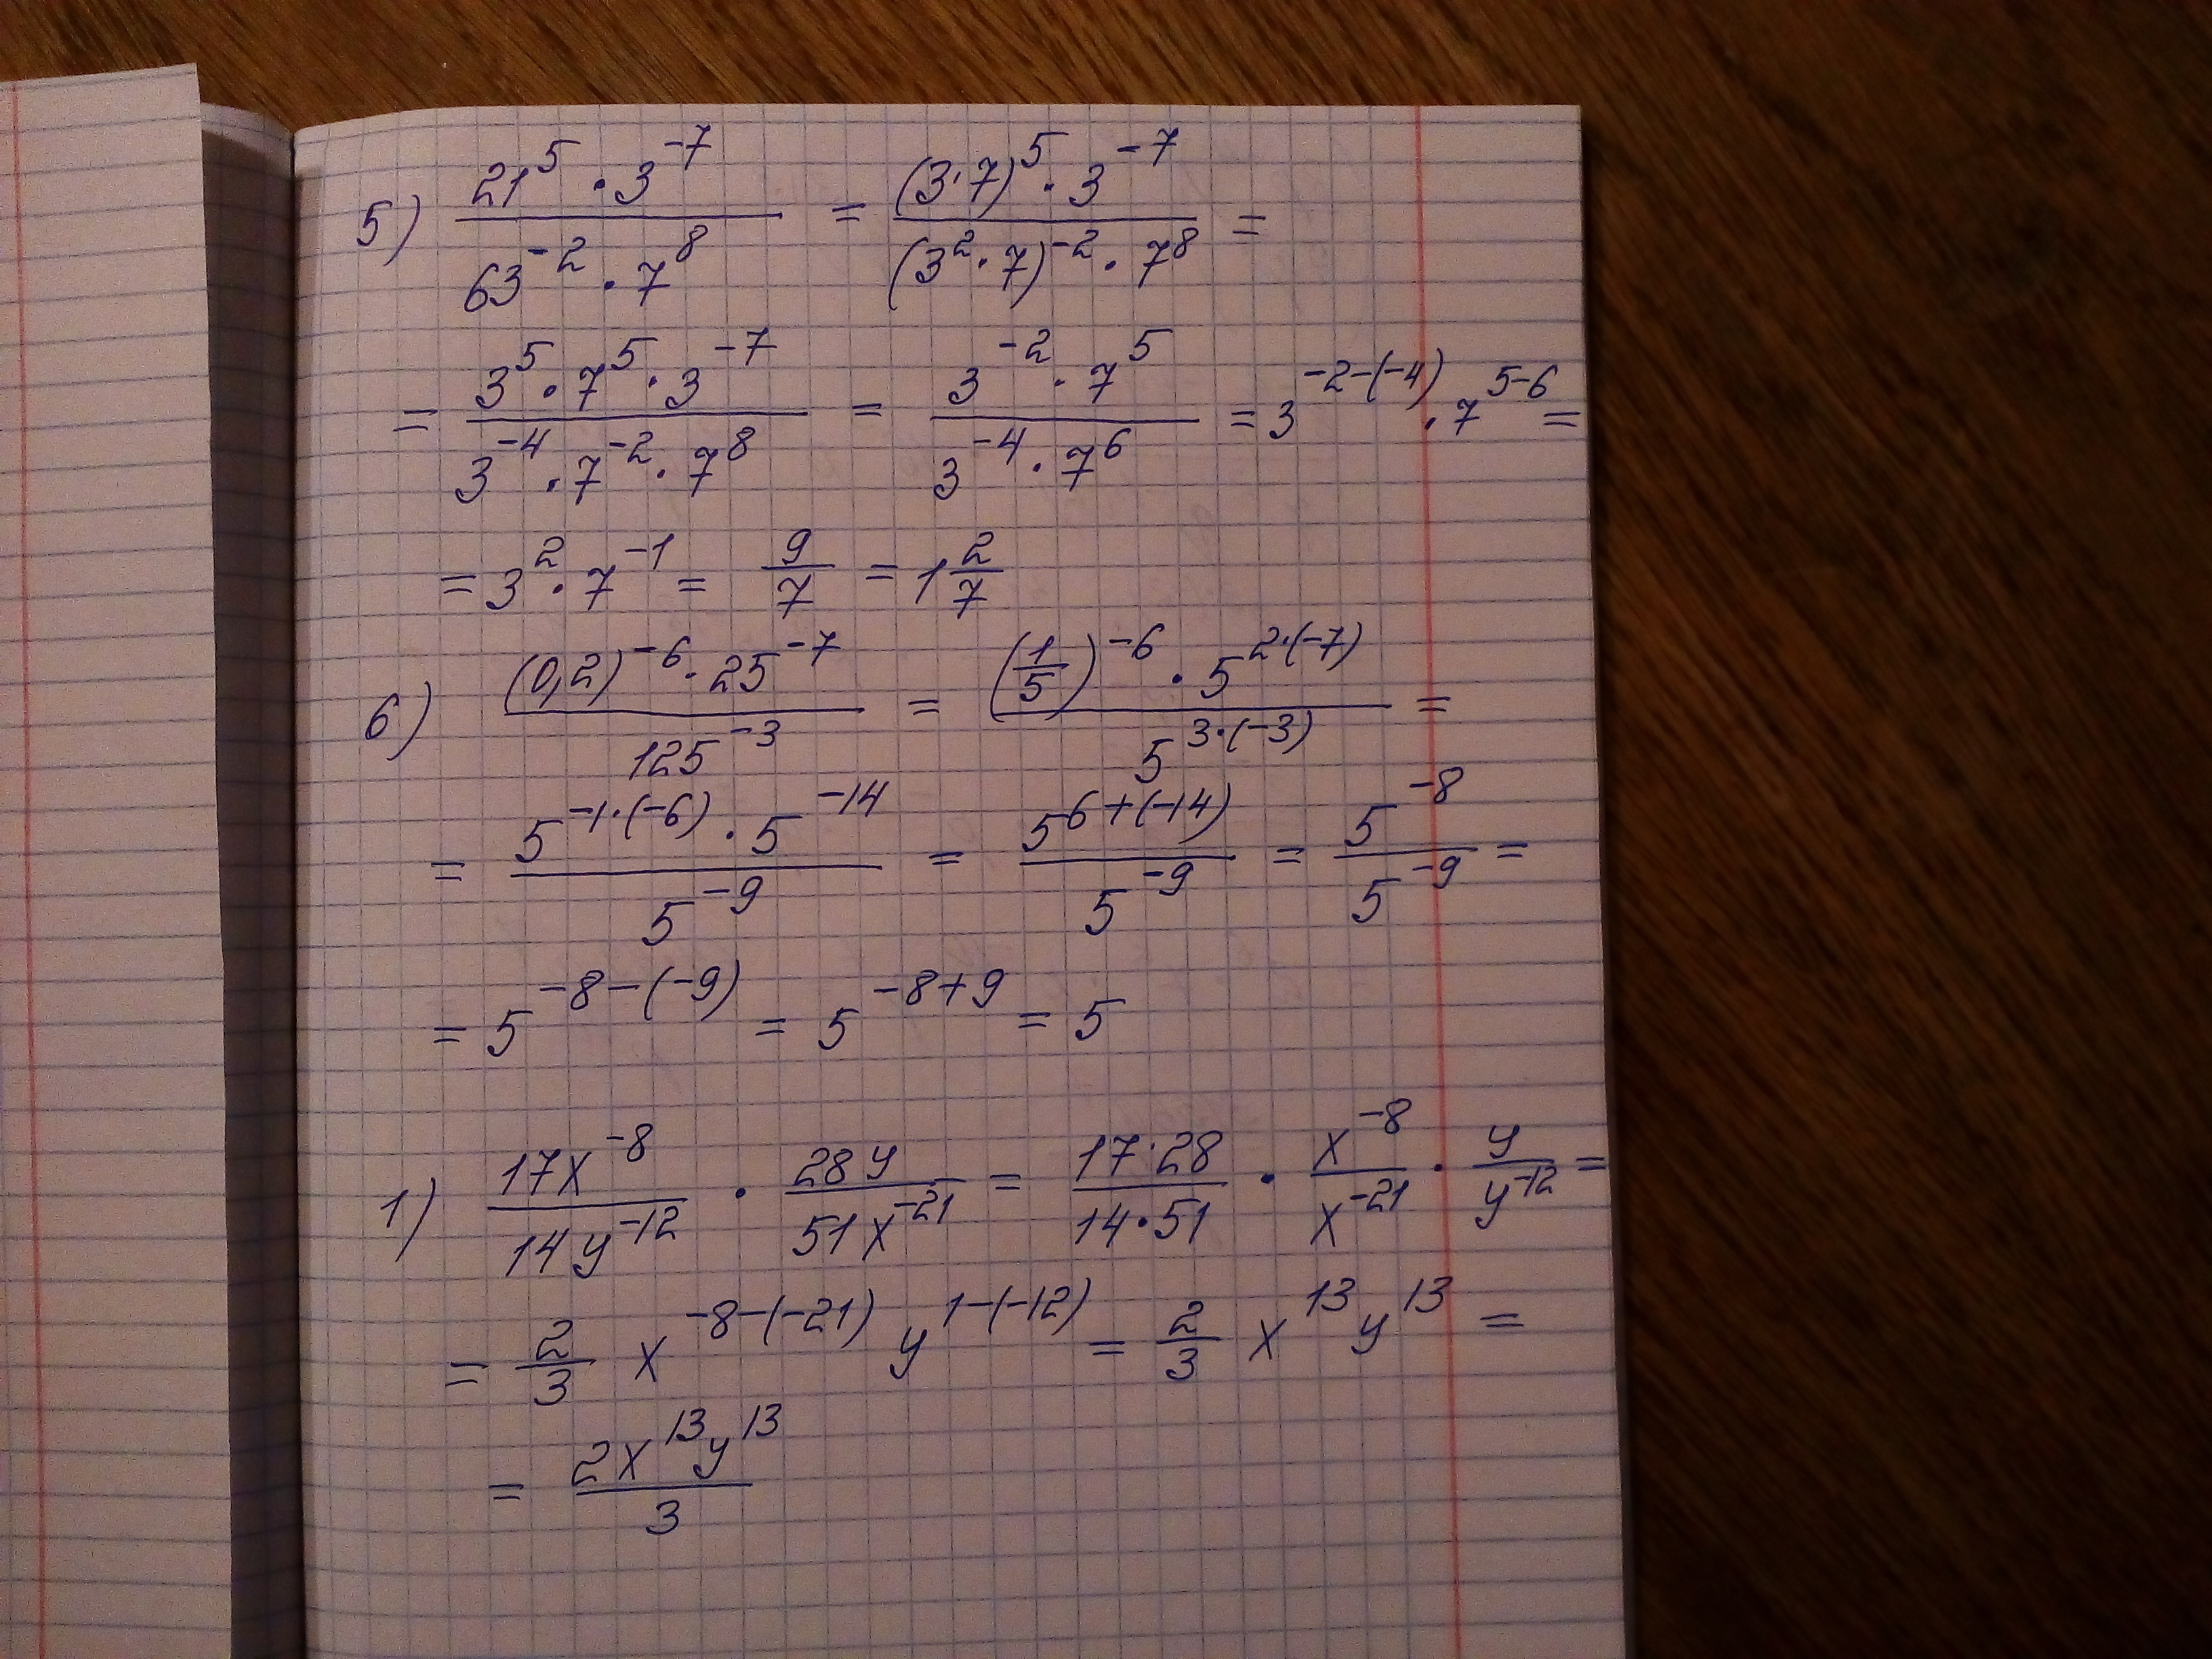 5) \frac{21^5 · 3^{-7}}{63^{-2} · 7^8} = \frac{(3·7)^5 · 3^{-7}}{(3^2·7)^{-2} · 7^8} =
= \frac{3^5 · 7^5 · 3^{-7}}{3^{-4} · 7^{-2} · 7^8} = \frac{3^{-2} · 7^5}{3^{-4} · 7^6} = 3^{-2-(-4)} · 7^{5-6} =
= 3^2 · 7^{-1} = \frac{9}{7} = 1\frac{2}{7}
6) \frac{(0,2)^{-6} · 25^{-7}}{125^{-3}} = \frac{(\frac{1}{5})^{-6} · 5^{2·(-7)}}{5^{3·(-3)}} =
= \frac{5^{-1·(-6)} · 5^{-14}}{5^{-9}} = \frac{5^{6+(-14)}}{5^{-9}} = \frac{5^{-8}}{5^{-9}} =
= 5^{-8-(-9)} = 5^{-8+9} = 5
1) \frac{17x^{-8}}{14y^{-12}} · \frac{28y}{51x^{-21}} = \frac{17·28}{14·51} · \frac{x^{-8}}{x^{-21}} · \frac{y}{y^{-12}} =
= \frac{2}{3} x^{-8-(-21)} y^{1-(-12)} = \frac{2}{3} x^{13} y^{13} =
= \frac{2x^{13}y^{13}}{3}